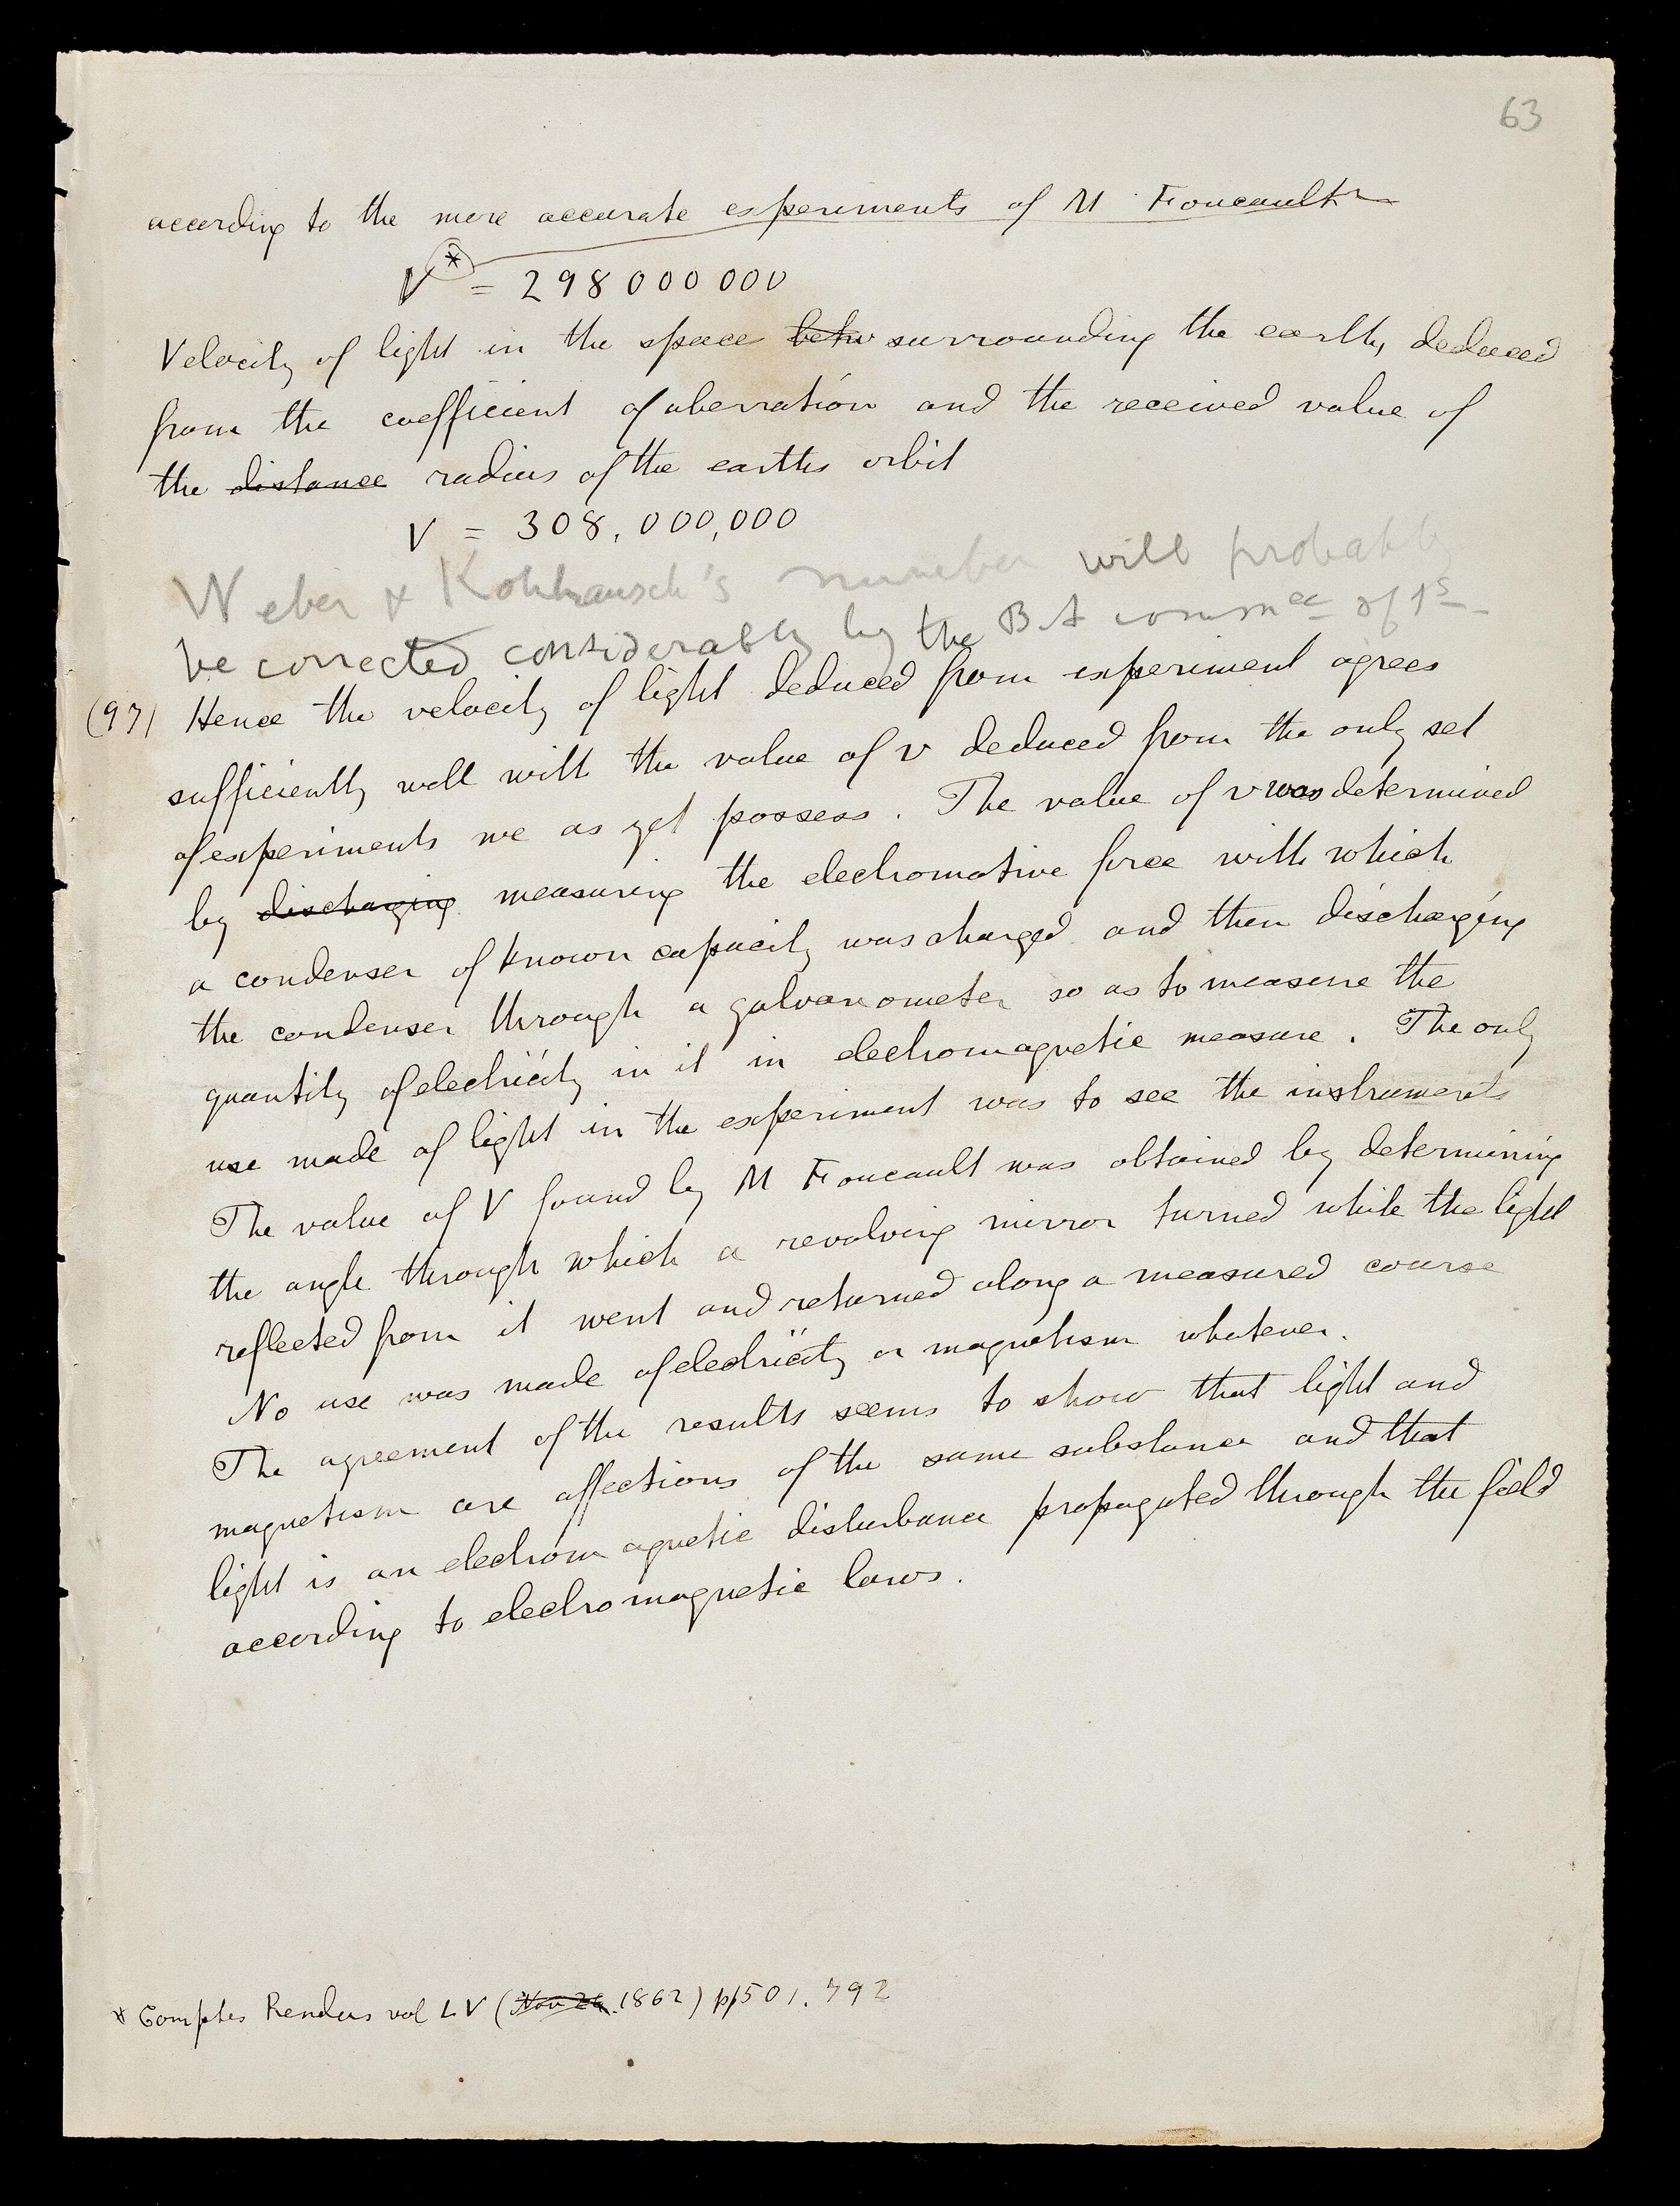 63
according to the more accurate experiments of M Foucault
V* = 298000000
Velocity of light in the space betw surrounding the earth, deduced
from the coefficient of aberration and the received value of
the distance radius of the earths orbit
V = 308,000,000
Weber & Kohlrausch's number will probably
be corrected considerably by the B.A
(97) Hence the velocity of light deduced from experiment agrees
sufficiently well with the value of v deduced from the only set
of experiments we as yet possess. The value of v was determined
by discharging measuring the electromotive force with which
a condenser of known capacity was charged and then discharging
the condenser through a galvanometer so as to measure the
quantity of electricity in it in electromagnetic measure. The only
use made of light in the experiment was to see the instruments
The value of V found by M Foucault was obtained by determining
the angle through which a revolving mirror turned while the light
reflected from it went and returned along a measured course
No use was made of electricity or magnetism whatever.
The agreement of the results seems to show that light and
magnetism are affections of the same substance and that
light is an electromagnetic disturbance propagated through the field
according to electromagnetic laws.
* Comptes Rendus vol LV (Nov 24. 1862) pp 501, 792